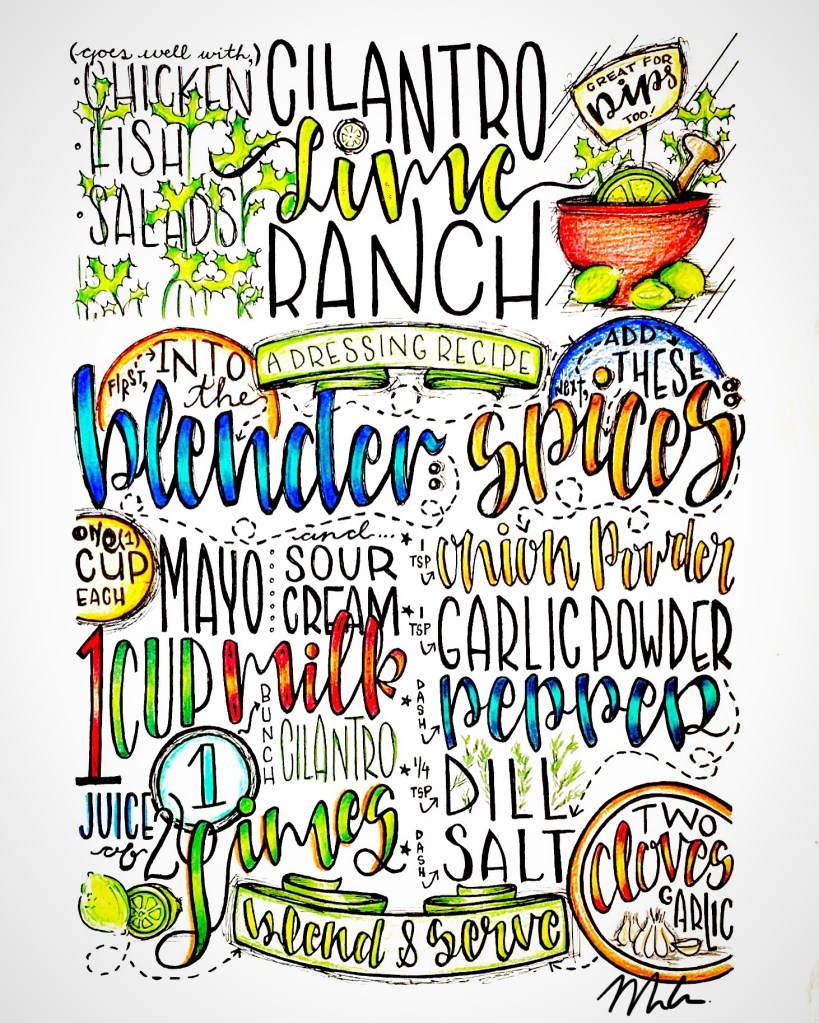 (goes well with,)
• CHICKEN
• FISH
• SALADS
CILANTRO
Lime
RANCH
GREAT FOR
Dips
TOO!
A DRESSING RECIPE
FIRST, INTO
the
blender:
NEXT, ADD
THESE
spices:
ONE(1)
CUP
EACH
MAYO
and...
SOUR
CREAM
1 CUP milk
1 BUNCH CILANTRO
JUICE
of 2 limes
1 TSP onion powder
1 TSP GARLIC POWDER
DASH pepper
1/4 TSP DILL
DASH SALT
TWO
cloves
GARLIC
blend & serve